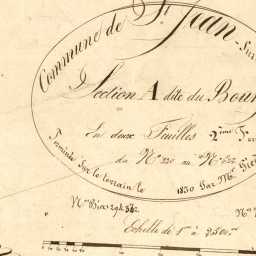 Commune de St. Jean-Sur
Section A dite du Bour
En deux Feuilles 2ème F
du Nº 220 au Nº
Terminée Sur le terrain le 1830 Par Mr.
Echelle de 1 à 2500